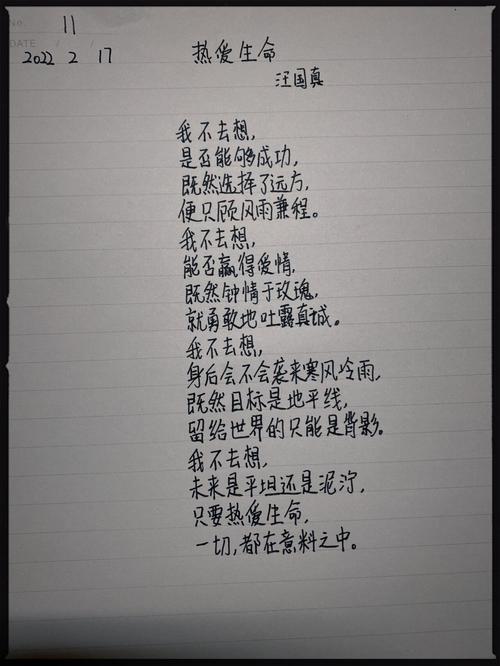 No. 11
DATE / /
2022 2 17
热爱生命
汪国真
我不去想,
是否能够成功,
既然选择了远方,
便只顾风雨兼程。
我不去想,
能否赢得爱情,
既然钟情于玫瑰,
就勇敢地吐露真诚。
我不去想,
身后会不会袭来寒风冷雨,
既然目标是地平线,
留给世界的只能是背影。
我不去想,
未来是平坦还是泥泞,
只要热爱生命,
一切,都在意料之中。